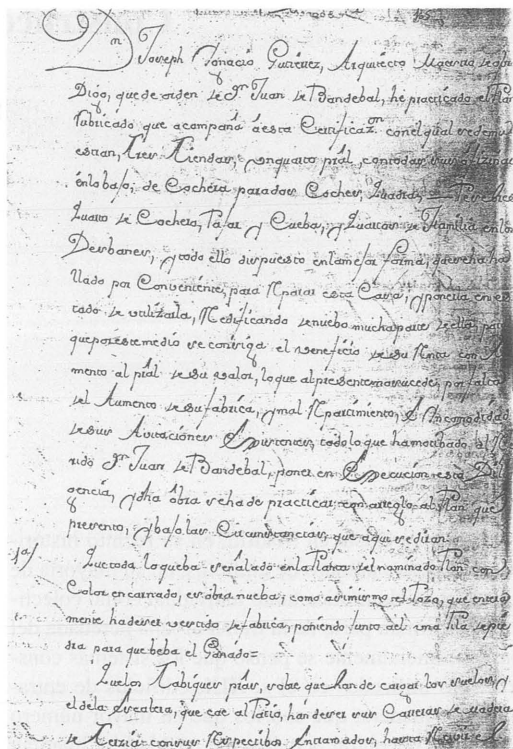 Dn Joseph Ygnacio Gutierrez, Arquitecto
Digo, que de orden de Dn Juan de Bandebal, he practicado el Plan
fabricado que acompaña â esta Certificazon con el qual se demu
estran, tres tiendas, y un quarto prâl, con todas sus ofizinas
en lo bajo; de Cochera para dos Coches, Quadra,
Quarto de Cochero, Pajar y Cueba, y Quartos de Familia en los
Desbanes, y todo ello dispuesto en la mejor forma, que se ha ha
llado por Conveniente, para Rparar esta Casa, y ponerla en es
tado de utilizala, Redificando de nuebo mucha parte de ella, para
que por este medio se consiga el veneficio de su Renta con
mento al prâl de su valor, lo que al presente no subcede, por falta
del Aumento de su fabrica, y mal Rpartimiento, è Yncomodidad
de sus Avitaciones todo lo que ha motibado al
rido Dn Juan de Bandebal, poner en Execucion esta Dili
gencia, y dha obra se ha de practicar con arreglo al Plan que
presento; y bajo las Circunstancias, que aqui se diran
1a/ Que toda lo que ba señalado en la Planta del nominado Plan con
Color encarnado, es obra nueba; como asimismo el Pozo, que entera
mente ha de ser vestido de fabrica, poniendo junto a el una Pila de pie
dra para que beba el Ganado=
Que los Tabiques prâles, sobre que han de cargar los suelos, y
el de la Escalera, que cae al Patio, han de ser sus Carreras de madera
de Tercia con sus Rspectibos Entramados, hasta